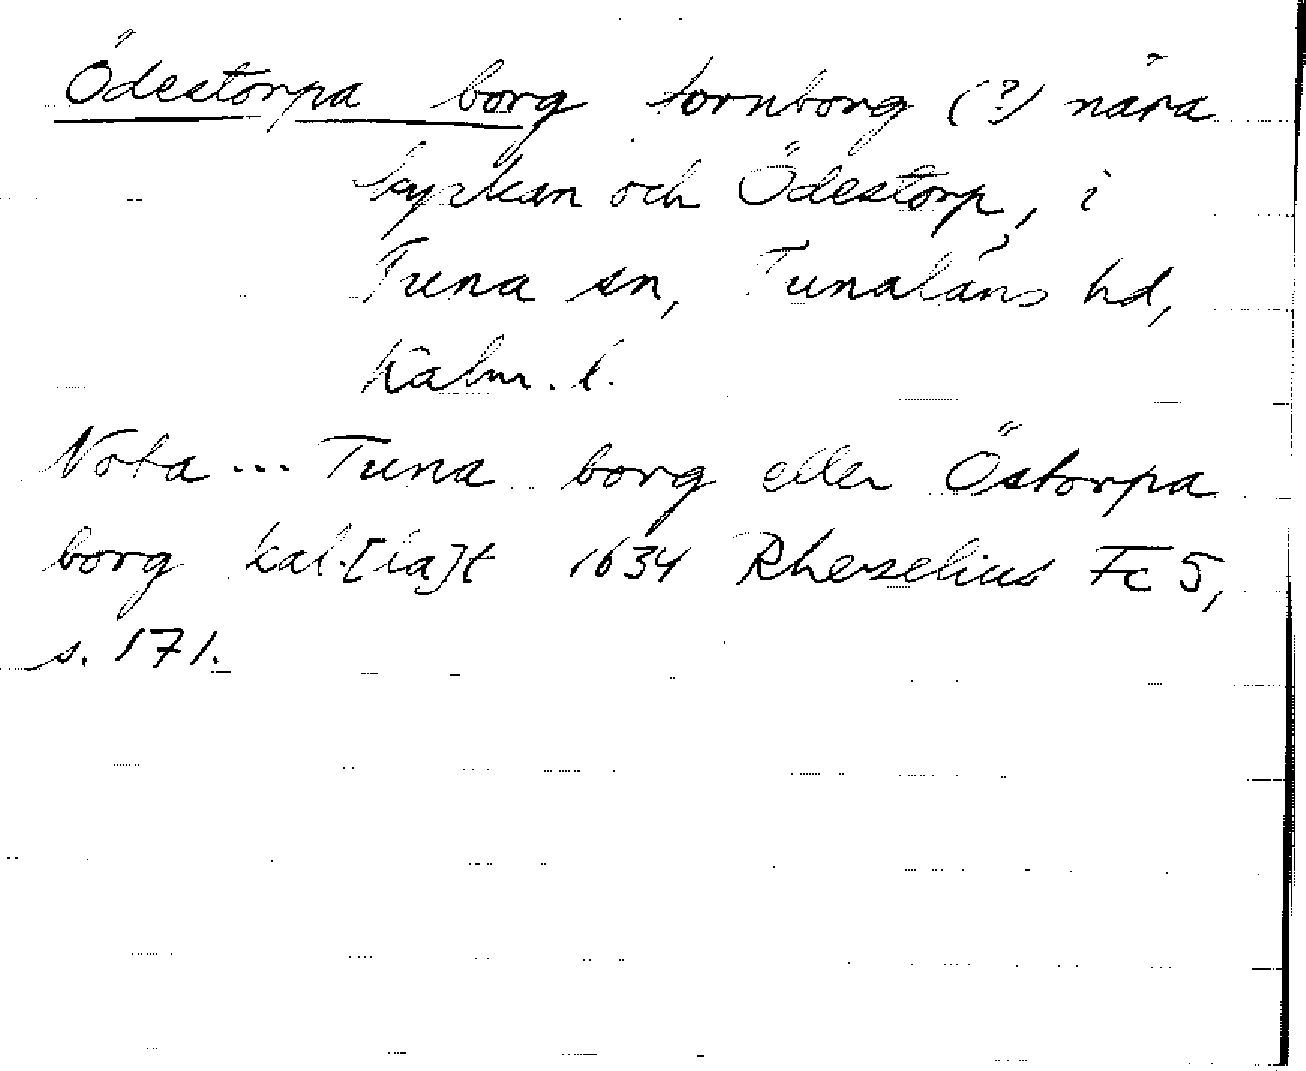 Ödestorpa borg tornborg (?) nära
kyrkan och Ödestorp, i
Tuna sn, Tunaläns hd,
Kalm. l.
Nota ... Tuna borg eller Östorpa
borg kal.[la]t 1634 Rhezelius Fc 5,
s. 171.